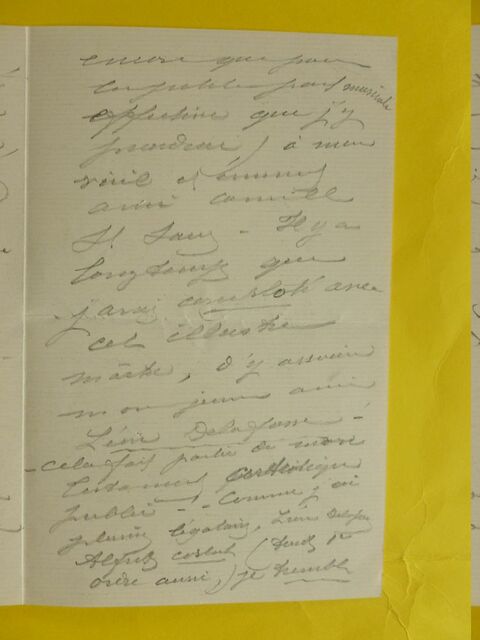 encore que pour
la petite part musicale
effective que j'y
prendrai) à mon
vieil et éminent
ami Camille
St Saens - Il y a
longtemps que
j'avais avec
cet illustre
maître, d'y associer
mon jeune ami
Léon Delafosse -
- cela fait partie de mon
testament artistique
publié - Comme j'ai
plusieurs légataires, Léon Delafosse
Alfred Cortot (tous 1er
ordre aussi,) je tremble